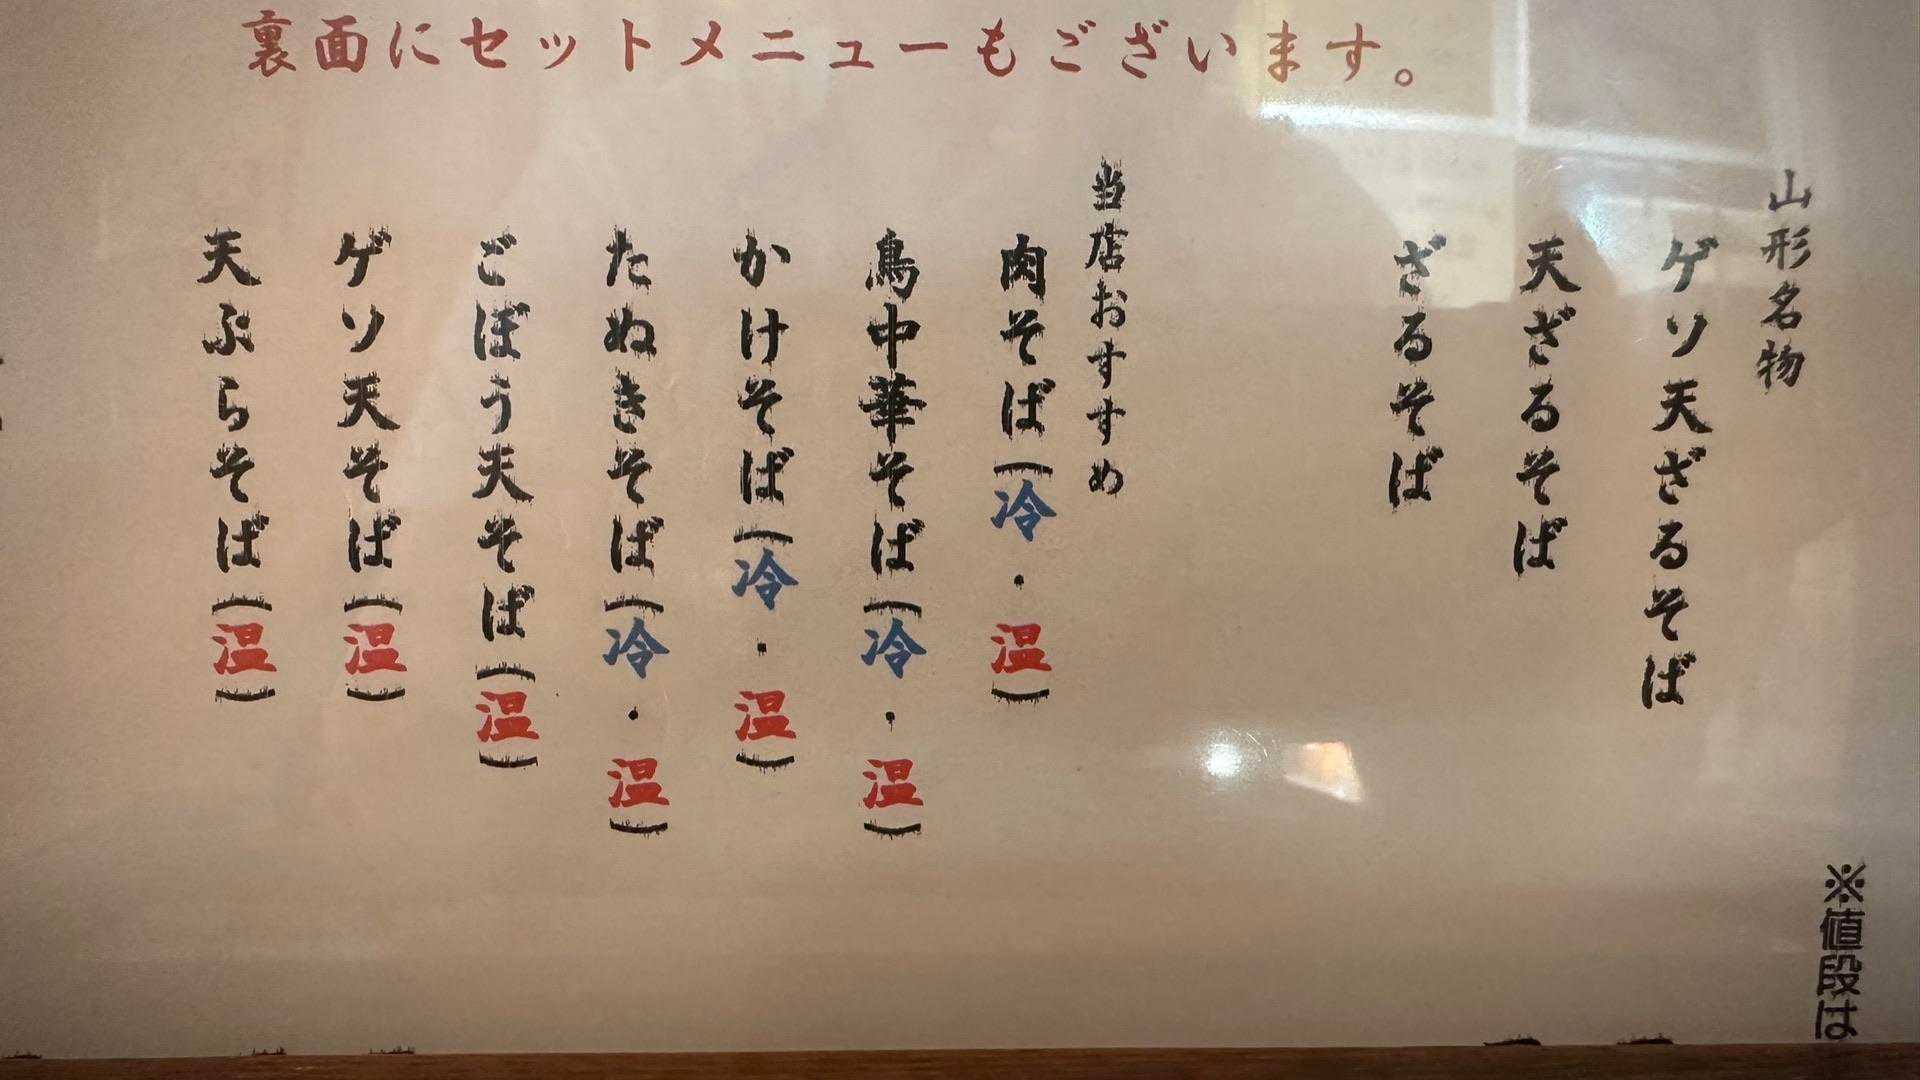 裏面にセットメニューもございます。
山形名物
ゲソ天ざるそば
天ざるそば
ざるそば
当店おすすめ
肉そば(冷・温)
鳥中華そば(冷・温)
かけそば(冷・温)
たぬきそば(冷・温)
ごぼう天そば(温)
ゲソ天そば(温)
天ぷらそば(温)
※値段は